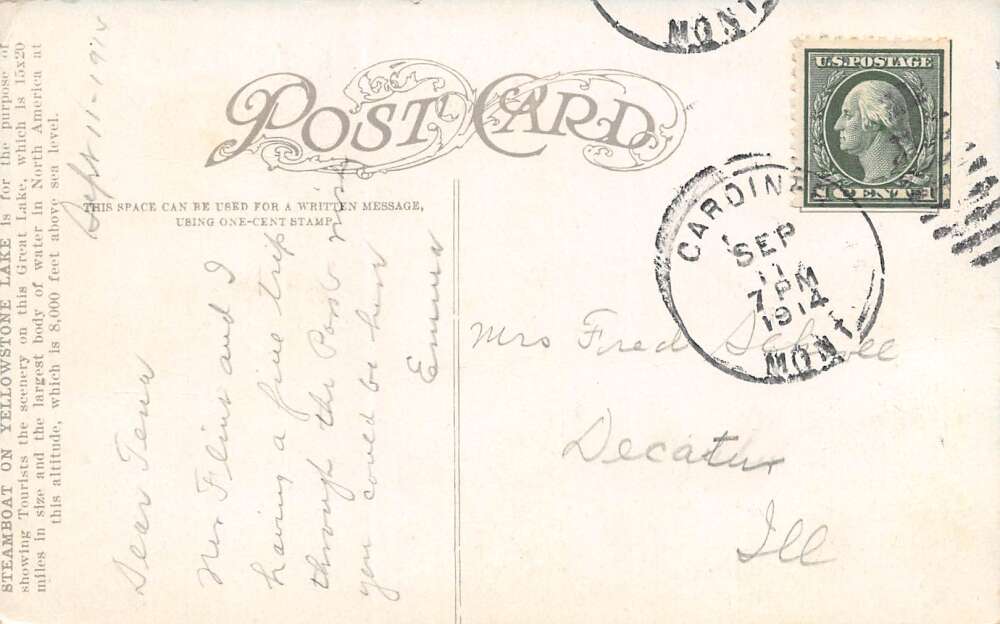 STEAMBOAT ON YELLOWSTONE LAKE is for the purpose of
showing Tourists the scenery on this Great Lake, which is 15x20
miles in size and the largest body of water in North America at
this altitude, which is 8,000 feet above sea level.
POST CARD
THIS SPACE CAN BE USED FOR A WRITTEN MESSAGE,
USING ONE-CENT STAMP
Sept 11-1914
Dear Tena
Mrs and I
having a fine trip
through the Park wish
you could be here
Emma
MONT.
U.S. POSTAGE
1 CENT 1
CARDIN
SEP
11
7 PM
1914
MONT.
Mrs Fred
Decatur
Ill